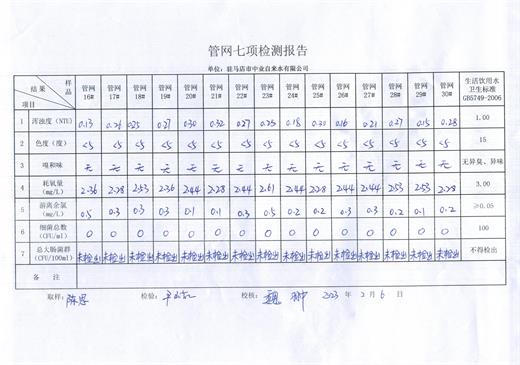 管网七项检测报告
单位：驻马店市中业自来水有限公司
结果 样品 项目 管网16# 管网17# 管网18# 管网19# 管网20# 管网21# 管网22# 管网23# 管网24# 管网25# 管网26# 管网27# 管网28# 管网29# 管网30# 生活饮用水卫生标准GB5749-2006
1 浑浊度（NTU） 0.13 0.21 0.25 0.27 0.30 0.32 0.27 0.25 0.18 0.30 0.16 0.21 0.27 0.15 0.28 1.00
2 色度（度） <5 <5 <5 <5 <5 <5 <5 <5 <5 <5 <5 <5 <5 <5 <5 15
3 嗅和味 无 无 无 无 无 无 无 无 无 无 无 无 无 无 无 无异臭、异味
4 耗氧量（mg/L） 2.36 2.28 2.53 2.36 2.44 2.28 2.44 2.61 2.44 2.28 2.44 2.44 2.53 2.53 2.28 3.00
5 游离余氯（mg/L） 0.5 0.3 0.3 0.3 0.1 0.1 0.3 0.5 0.2 0.2 0.3 0.3 0.2 0.1 0.2 ≥0.05
6 细菌总数（CFU/ml） 0 0 0 0 0 0 0 0 0 0 0 0 0 0 0 100
7 总大肠菌群（CFU/100ml） 未检出 未检出 未检出 未检出 未检出 未检出 未检出 未检出 未检出 未检出 未检出 未检出 未检出 未检出 未检出 不得检出
备 注
取样： 检验： 校核： 2023 年 2 月 6 日